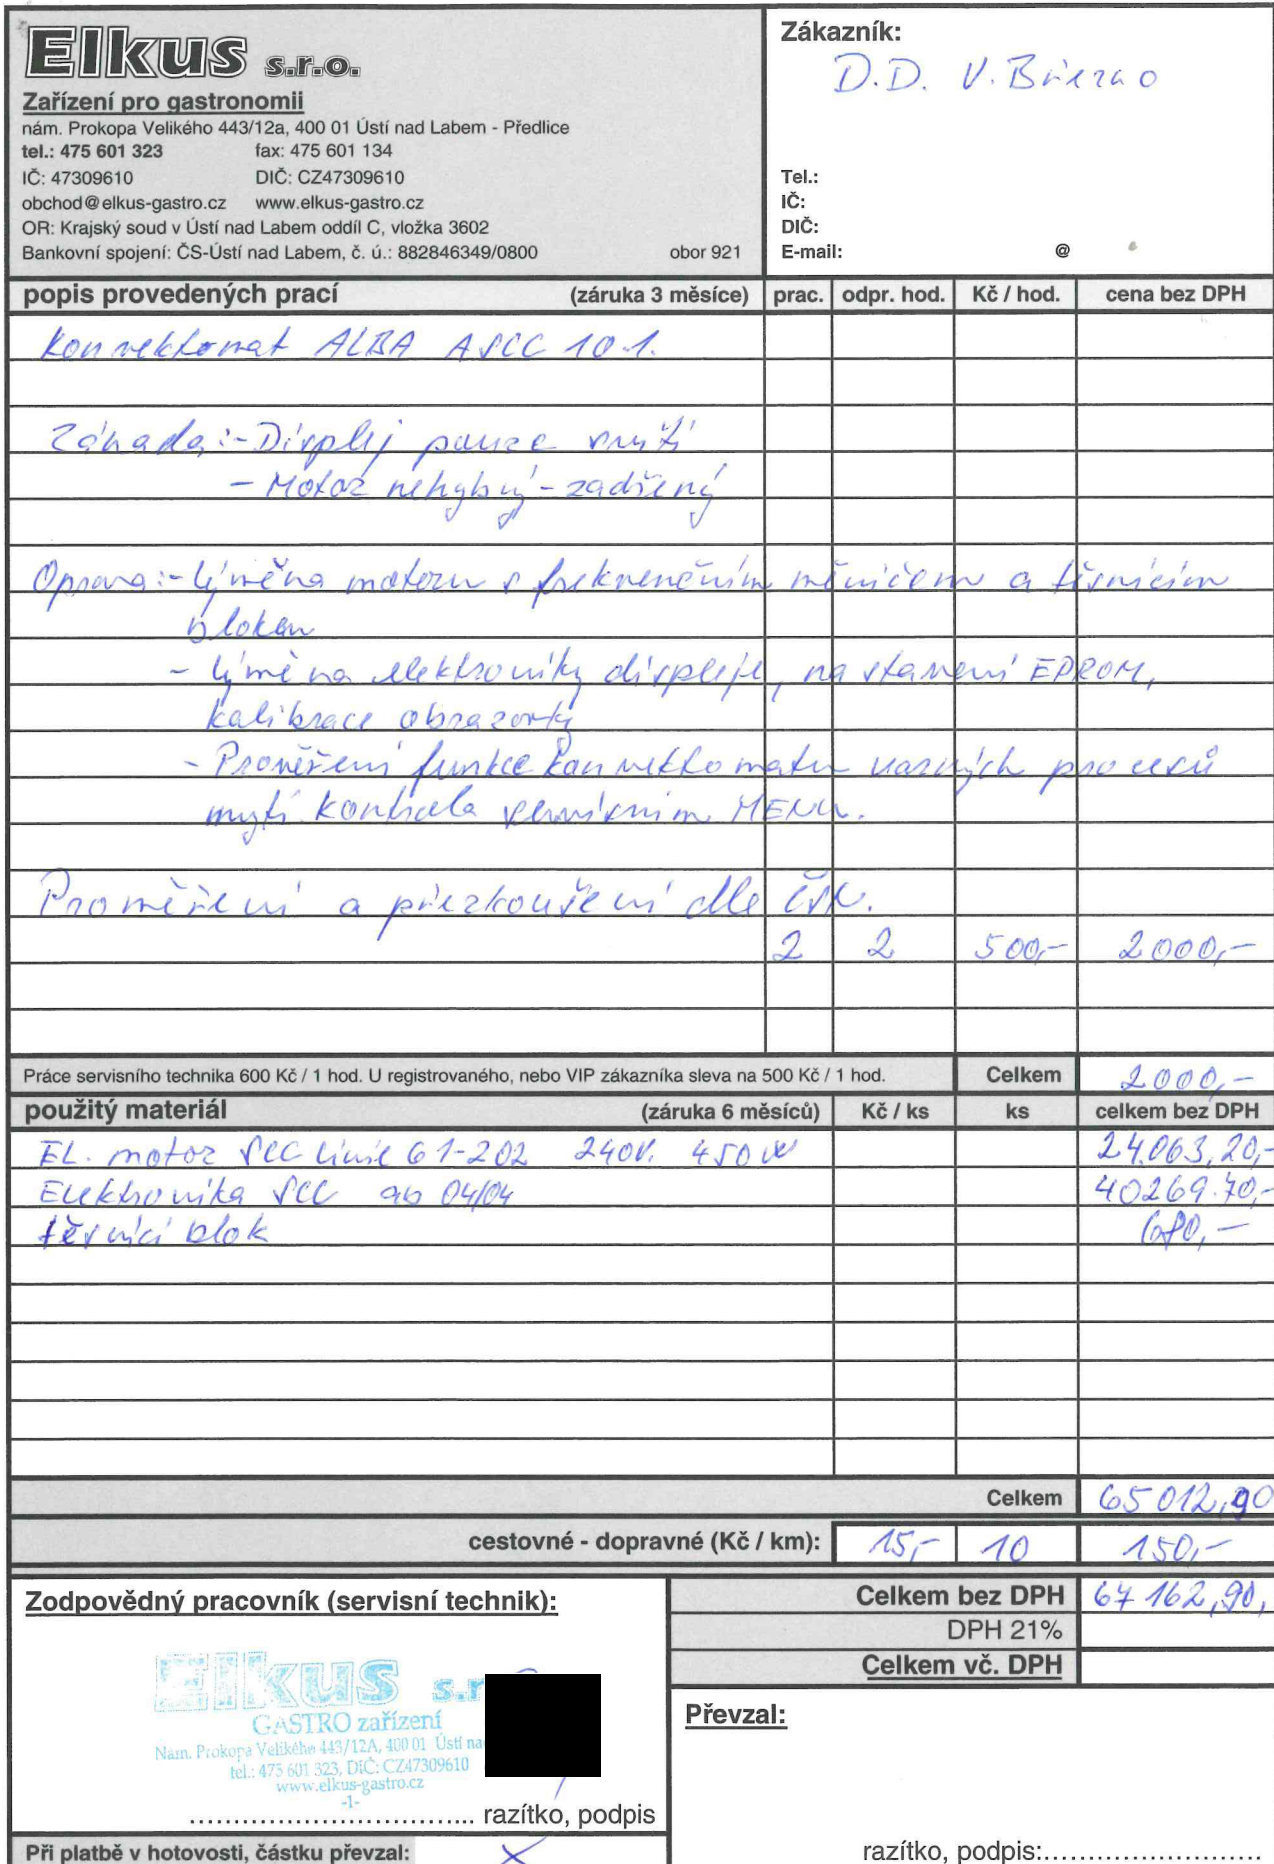 Elkus s.r.o.
Zařízení pro gastronomii
nám. Prokopa Velikého 443/12a, 400 01 Ústí nad Labem - Předlice
tel.: 475 601 323 fax: 475 601 134
IČ: 47309610 DIČ: CZ47309610
obchod@elkus-gastro.cz www.elkus-gastro.cz
OR: Krajský soud v Ústí nad Labem oddíl C, vložka 3602
Bankovní spojení: ČS-Ústí nad Labem, č. ú.: 882846349/0800 obor 921
Zákazník:
D.D. V. Březno
Tel.:
IČ:
DIČ:
E-mail: @
popis provedených prací (záruka 3 měsíce) prac. odpr. hod. Kč / hod. cena bez DPH
Konvektomat ALBA ASCC 10.1.
Záhada:- Displej pouze
- Motor nehybný - zadřený
Oprava:- Výměna motoru s frekvenčním měničem a těsnicím
blokem
- Výměna elektroniky displeje, nastavení EPROM,
kalibrace obrazovky
- Prověření funkce konvektomatu varných procesů
mytí kontrola servisním MENU.
Proměření a přezkoušení dle ČSN.
2 2 500,- 2000,-
Práce servisního technika 600 Kč / 1 hod. U registrovaného, nebo VIP zákazníka sleva na 500 Kč / 1 hod. Celkem 2000,-
použitý materiál (záruka 6 měsíců) Kč / ks ks celkem bez DPH
EL. motor SCC Linie 61-202 240V. 450W 24.063,20,-
Elektronika SCC ab 04/04 40269.70,-
těsnící blok 680,-
Celkem 65 012,90
cestovné - dopravné (Kč / km): 15,- 10 150,-
Zodpovědný pracovník (servisní technik):
Celkem bez DPH 67 162,90,
DPH 21%
Celkem vč. DPH
Elkus s.r
GASTRO zařízení
Nám. Prokopa Velikého 443/12A, 400 01 Ústí na
tel.: 475 601 323, DIČ: CZ47309610
www.elkus-gastro.cz
-1-
.............................. razítko, podpis
Převzal:
razítko, podpis:........................
Při platbě v hotovosti, částku převzal: X